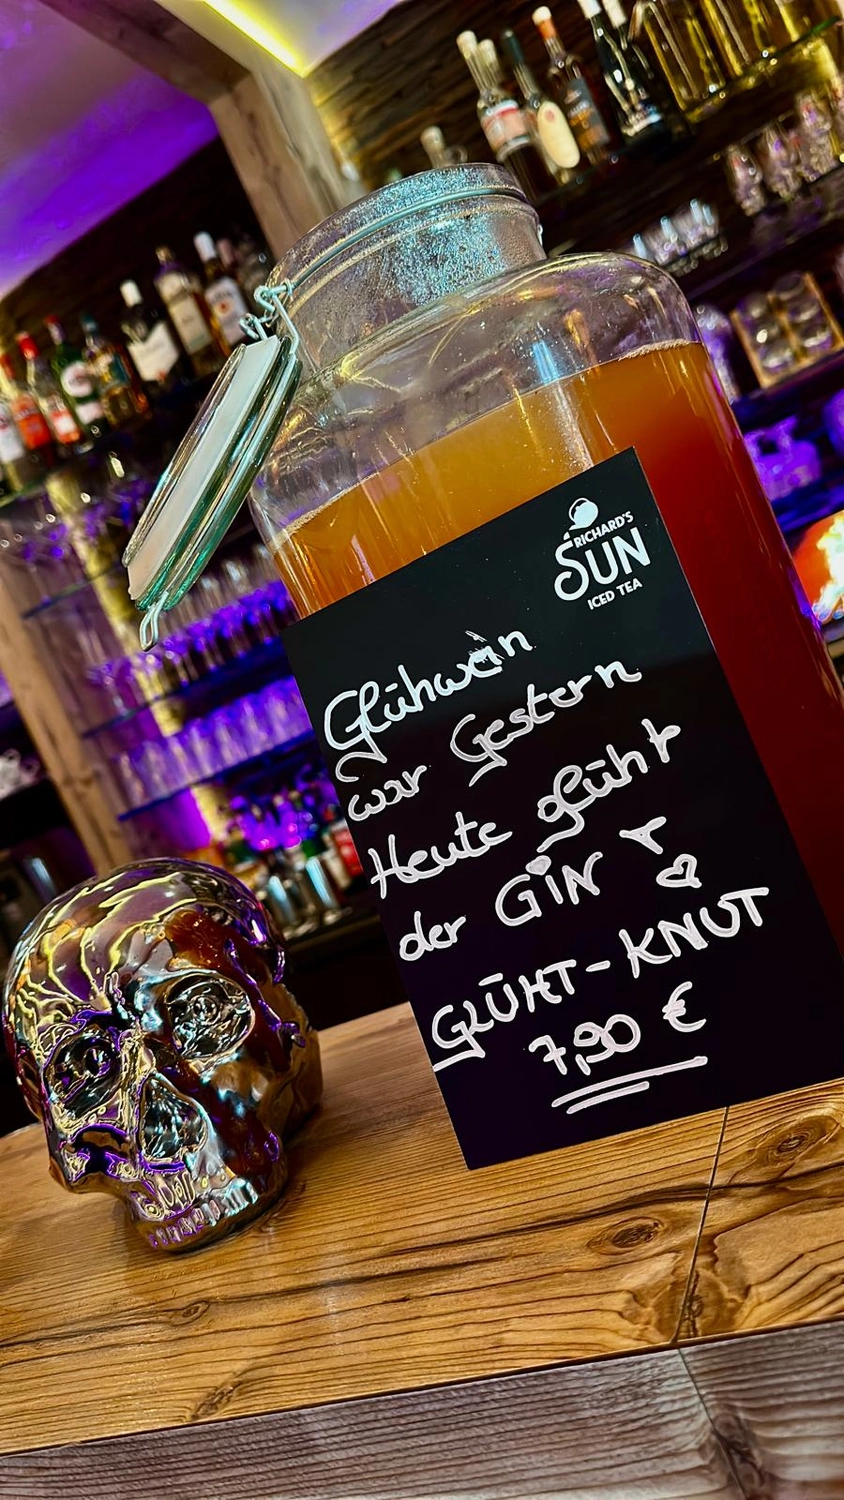 RICHARD'S
SUN
ICED TEA
Glühwein
war Gestern
Heute glüht
der GIN
GLÜHT-KNUT
7,90 €